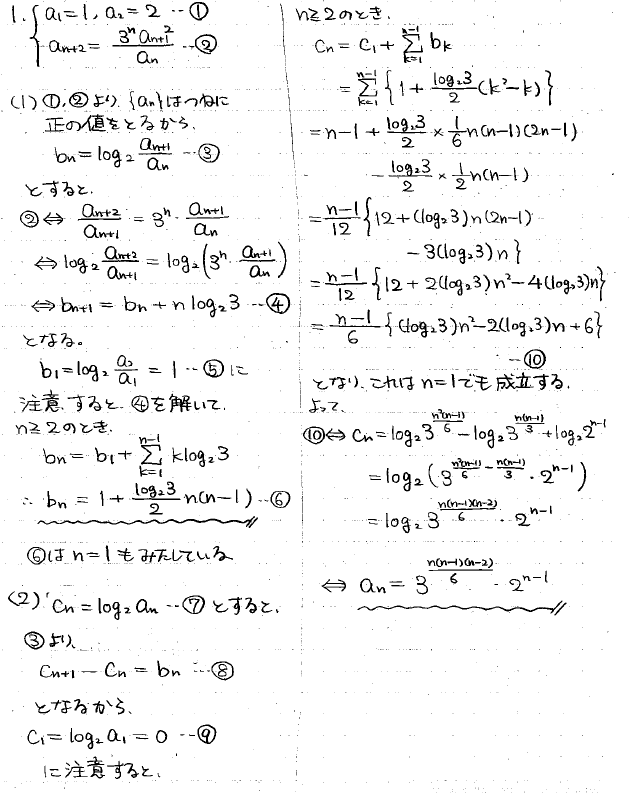 1. { a₁=1, a₂=2 …①
aₙ₊₂ = 3ⁿaₙ₊₁² / aₙ …②
(1) ①,②より, {aₙ}はつねに
正の値をとるから,
bₙ = log₂ aₙ₊₁/aₙ …③
とすると,
② ⇔ aₙ₊₂/aₙ₊₁ = 3ⁿ· aₙ₊₁/aₙ
⇔ log₂ aₙ₊₂/aₙ₊₁ = log₂(3ⁿ· aₙ₊₁/aₙ)
⇔ bₙ₊₁ = bₙ + n log₂3 …④
となる。
b₁ = log₂ a₂/a₁ = 1 …⑤ に
注意すると, ④を解いて,
n≧2のとき,
bₙ = b₁ + Σ[k=1→n-1] k log₂3
∴ bₙ = 1 + (log₂3)/2 n(n-1) …⑥
⑥は n=1 もみたしている
(2) cₙ = log₂ aₙ …⑦ とすると,
③より,
cₙ₊₁ - cₙ = bₙ …⑧
となるから,
c₁ = log₂ a₁ = 0 …⑨
に注意すると,
n≧2のとき,
cₙ = c₁ + Σ[k=1→n-1] bₖ
= Σ[k=1→n-1] {1 + (log₂3)/2 (k²-k)}
= n-1 + (log₂3)/2 × 1/6 n(n-1)(2n-1)
- (log₂3)/2 × 1/2 n(n-1)
= (n-1)/12 {12 + (log₂3)n(2n-1)
- 3(log₂3)n}
= (n-1)/12 {12 + 2(log₂3)n² - 4(log₂3)n}
= (n-1)/6 {(log₂3)n² - 2(log₂3)n + 6}
…⑩
となり, これは n=1 でも成立する.
よって,
⑩ ⇔ cₙ = log₂3^(n²(n-1)/6) - log₂3^(n(n-1)/3) + log₂2^(n-1)
= log₂(3^(n²(n-1)/6 - n(n-1)/3) · 2^(n-1))
= log₂3^(n(n-1)(n-2)/6) · 2^(n-1)
⇔ aₙ = 3^(n(n-1)(n-2)/6) · 2^(n-1)